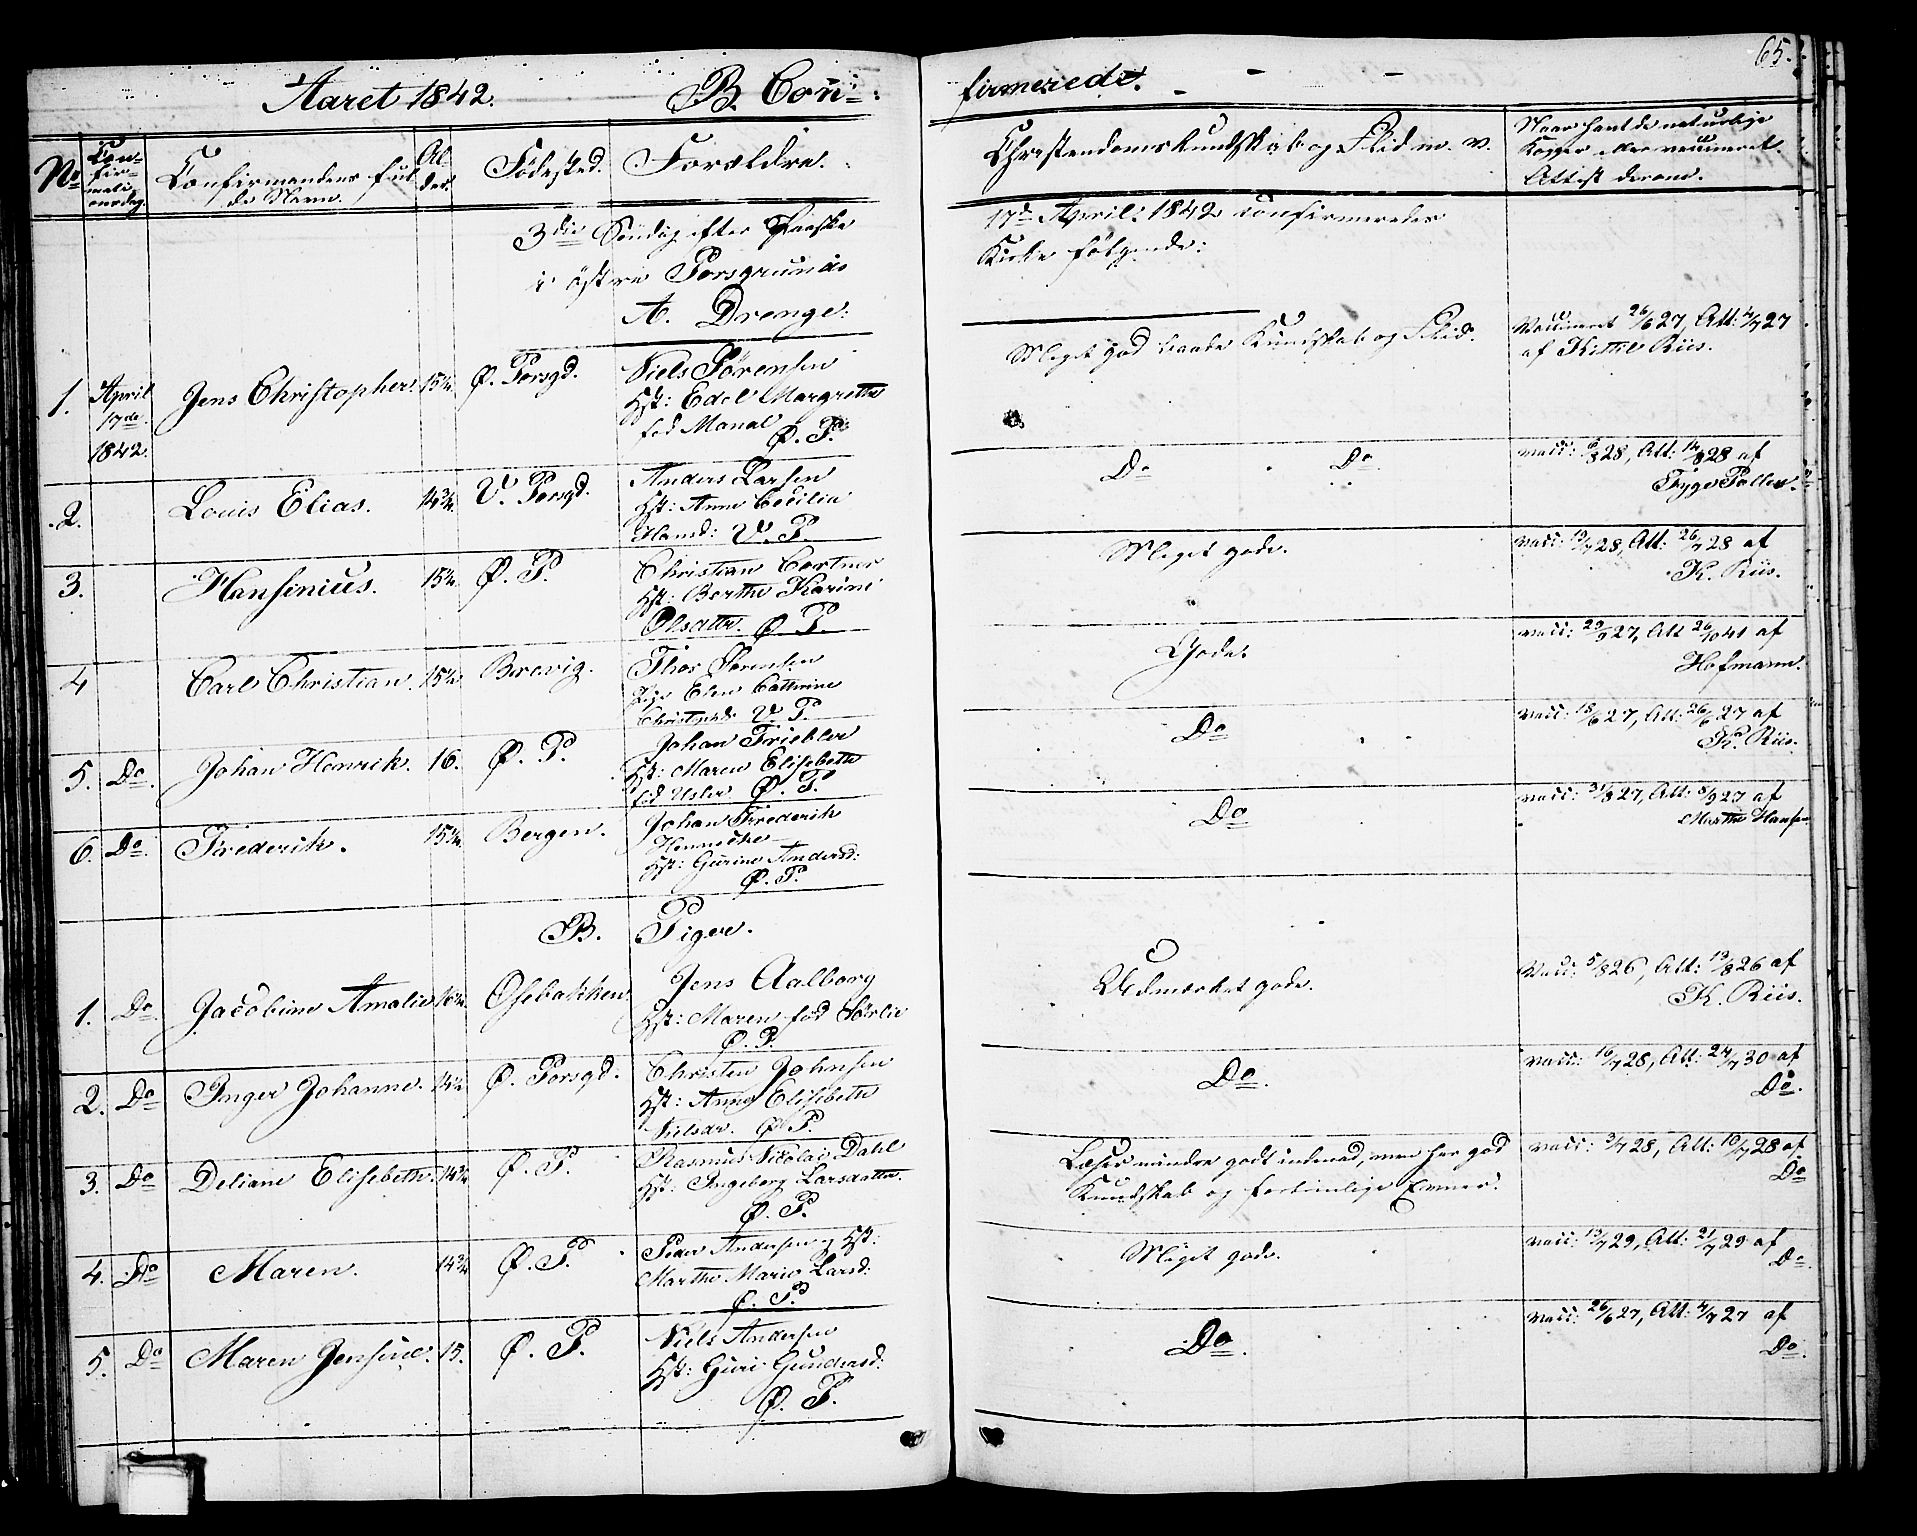 65.
Aaret 1842. B. Con-
firmerede.
No
Con-
fir-
mati-
onsdag.
Confirmandens ful-
de Navn.
Al-
der.
Fødested.
Forældre.
Christendomskundskab og Flid m. v.
Naar havt de naturlige
Kopper eller vaccineret
Attest derom.
3die Søndag efter Paaske
17de April 1842 confirmeredes
i østre Porsgrunds
Kirke følgende:
A. Drenge.
1.
April
17de
1842
Jens Christopher.
15¼
Ø. Porsgd.
Niels Sørensen
Hst: Edel Margrethe
fød Manal
Ø. P.
Meget god baade Kundskab og Flid.
Vaccineret 26/6 27, Att: 4/7 27
af Kittil Riis.
2.
Louis Elias.
14¾
V. Porsgd.
Anders Larsen
Hst: Anne Cecilia
Hansd: V. P.
Do Do
vacc: 6/8 28, Att: 14/8 28 af
3.
Hansenius.
15¼
Ø. P.
Christian Cortner
Hst: Berthe Karine
Olsdatter. Ø P.
Meget gode.
vacc: 19/7 28, Att: 26/7 28 af
K. Riis.
4
Carl Christian.
15¼
Brevig.
Thor Sørensen
Elen Cathrine
Christensd: V. P.
Gode.
vacc: 29/9 27, Att 26/10 41 af
Hofmann.
5.
Do.
Johan Henrik.
16.
Ø. P.
Johan Friebler
Hst: Maren Elisebeth
fød Usler Ø. P.
Do
vacc: 18/6 27, Att: 26/6 27 af
K. Riis.
6.
Do.
Frederik.
15¼
Bergen.
Johan Frederik
Hennecke
Hst: Gurine Andersd:
Ø. P.
Do
vacc: 31/8 27, Att: 8/9 27 af
Marthe Hansen
B. Piger.
1.
Do.
Jacobine Amalie
Osebakken.
Jens Aalborg
Hst: Maren fød Sørlie
Ø. P.
Udmærket gode.
Vacc: 5/8 26, Att: 13/8 26 af
K. Riis.
2.
Do
Inger Johanne.
14¼
Ø. Porsgd.
Christen Johnsen
Hst: Anne Elisebeth
Nielsdr. Ø P.
Do.
vacc: 16/7 28, Att: 24/7 30 af
Do.
3.
Do
Deliane Elisebeth.
14¾
Ø. P.
Rasmus Nicolai Dahl
Hst: Ingeborg Larsdatter.
Ø. P.
Læser mindre godt indenad, men har god
Kundskab og forbindlige Evner.
vacc: 3/7 28, Att: 10/7 28 af
Do
4.
Do
Maren.
14¾
Ø. P.
Peder Andersen og Hst:
Marthe Marie Larsd:
Ø. P.
Meget gode.
vacc: 13/7 29, Att: 21/7 29 af
Do
5.
Do
Maren Jensine.
15.
Ø. P.
Niels Andersen
Hst: Guri Gundersd:
Ø. P.
Do.
vacc: 26/6 27, Att: 4/7 27 af
Do.